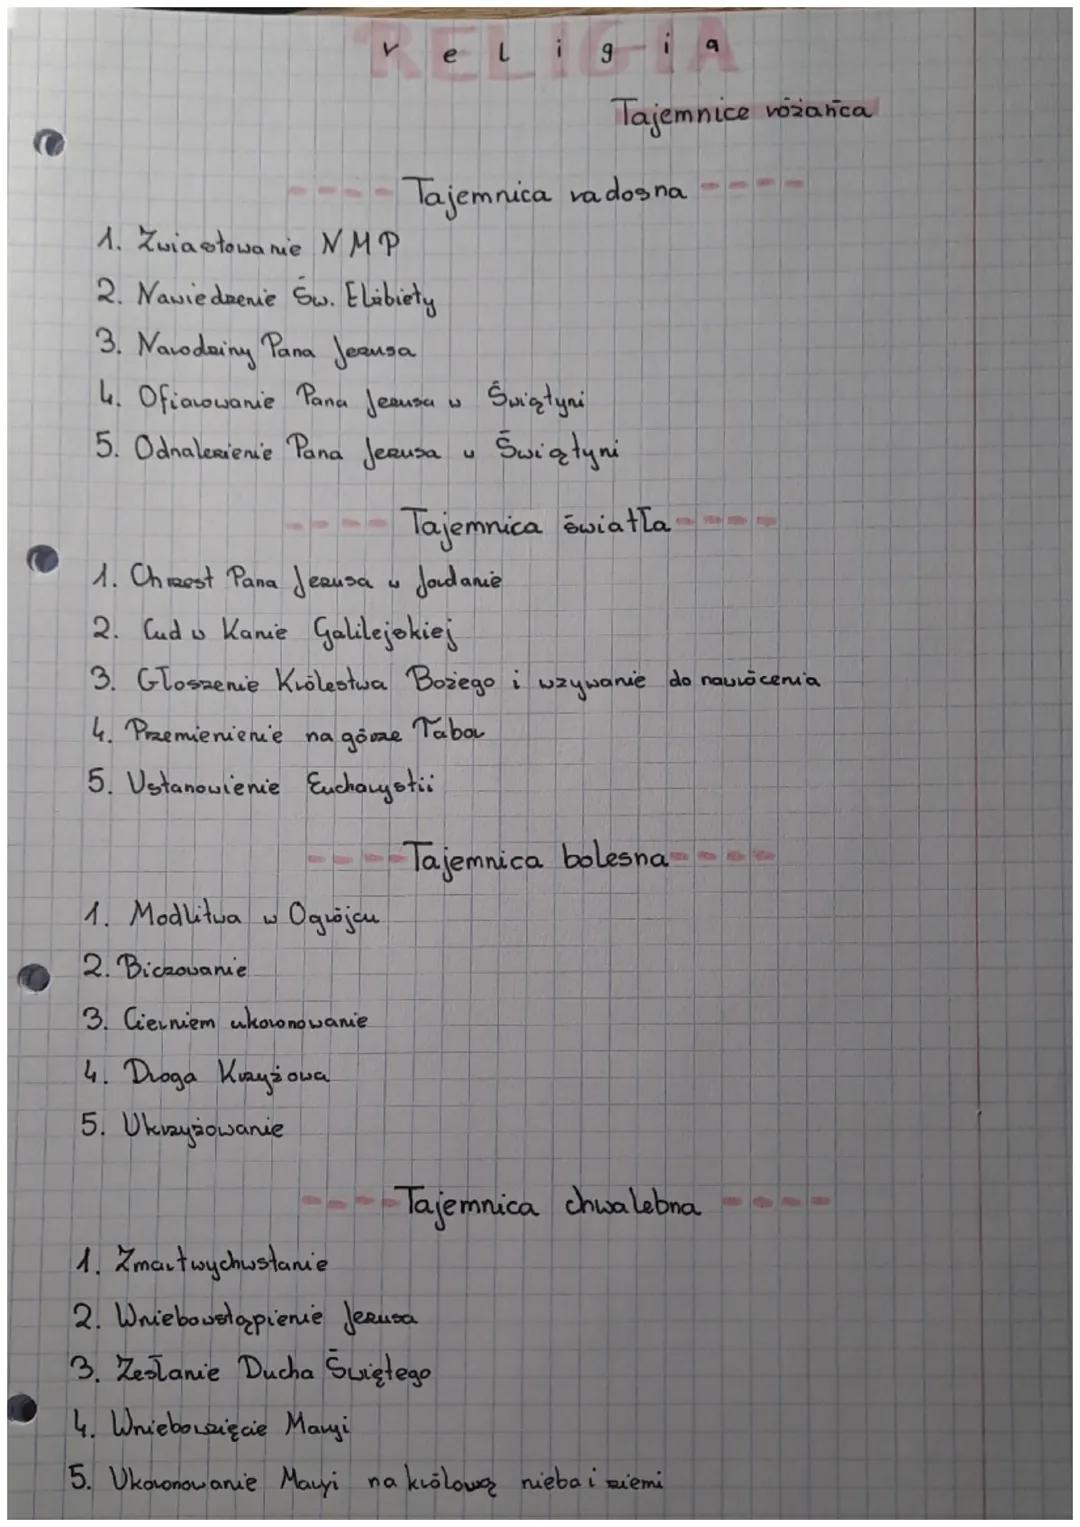 RELIGIA
religia
Tajemnice różańca
Tajemnica radosna
1. Zwiastowanie NMP
2. Nawiedzenie Św. Elżbiety
3. Narodziny Pana Jezusa
4. Ofiarowanie Pana Jezusa w Świątyni
5. Odnalezienie Pana Jezusa w Świątyni
Tajemnica światła
1. Chrzest Pana Jezusa w Jordanie
2. Cud w Kanie Galilejskiej
3. Głoszenie Królestwa Bożego i wzywanie do nawrócenia
4. Przemienienie na górze Tabor
5. Ustanowienie Eucharystii
Tajemnica bolesna
1. Modlitwa w Ogrójcu
2. Biczowanie
3. Cierniem ukoronowanie
4. Droga Krzyżowa
5. Ukrzyżowanie
Tajemnica chwalebna
1. Zmartwychwstanie
2. Wniebowstąpienie Jezusa
3. Zesłanie Ducha Świętego
4. Wniebowzięcie Maryi
5. Ukoronowanie Maryi na królową nieba i ziemi